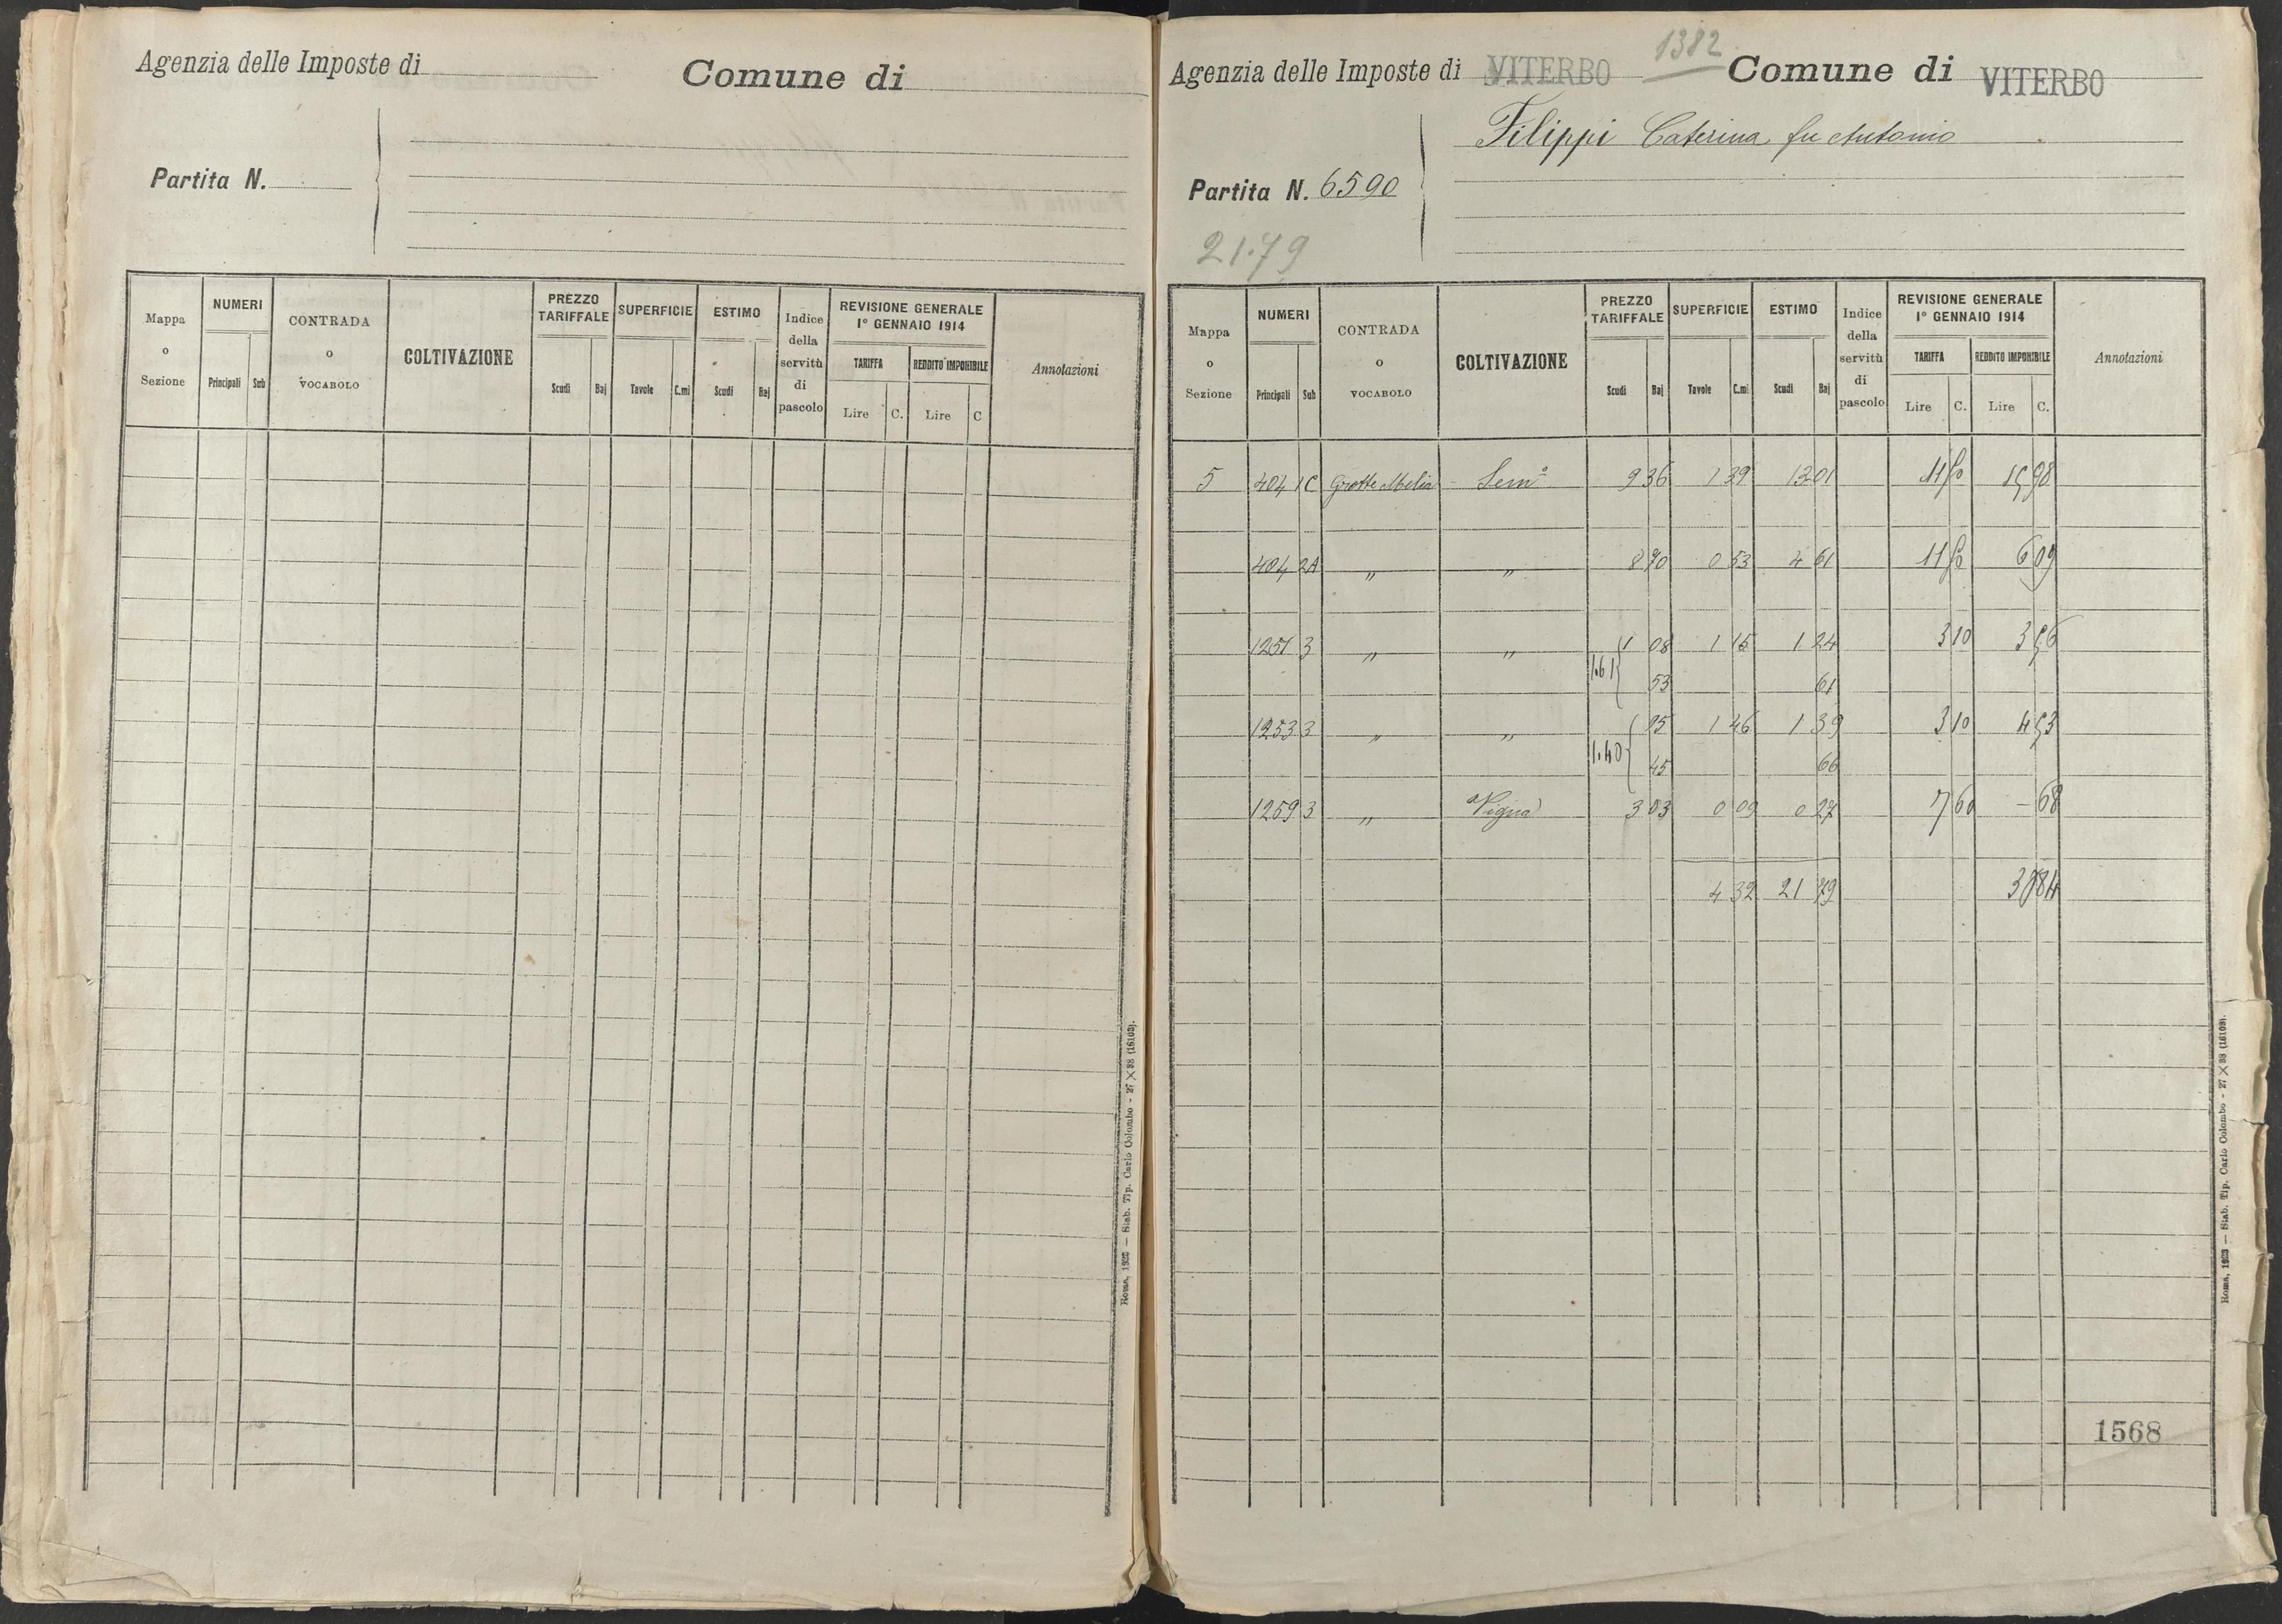 Agenzia delle Imposte di
Comune di
Partita N.
Mappa o Sezione
NUMERI
Principali Sub
CONTRADA o VOCABOLO
COLTIVAZIONE
PREZZO TARIFFALE
Scudi Baj
SUPERFICIE
Tavole C.mi
ESTIMO
Scudi Baj
Indice della servitù di pascolo
REVISIONE GENERALE
1° GENNAIO 1914
TARIFFA
Lire C.
REDDITO IMPONIBILE
Lire C
Annotazioni
Stab. Tip. Carlo Colombo - 27 X 38 (16103).
1382
Agenzia delle Imposte di VITERBO Comune di VITERBO
Filippi Caterina fu Antonio
Partita N. 6590
21.79
Mappa o Sezione
NUMERI
Principali Sub
CONTRADA o VOCABOLO
COLTIVAZIONE
PREZZO TARIFFALE
Scudi Baj
SUPERFICIE
Tavole C.mi
ESTIMO
Scudi Baj
Indice della servitù di pascolo
REVISIONE GENERALE
1° GENNAIO 1914
TARIFFA
Lire C.
REDDITO IMPONIBILE
Lire C.
Annotazioni
5 404 1C Grotte Melia Sem° 9 36 1 39 13 01 11 50 15 98
404 2A " " 8 70 0 53 4 61 11 50 6 09
1251 3 " " 1 08 1 15 1 24 3 10 3 56
1.61 53 61
1253 3 " " 95 1 46 1 39 3 10 4 53
1.40 45 66
1259 3 " Vigna 3 03 0 09 0 27 7 60 – 68
4 32 21 79 30 84
1568
Stab. Tip. Carlo Colombo - 27 X 38 (16103).